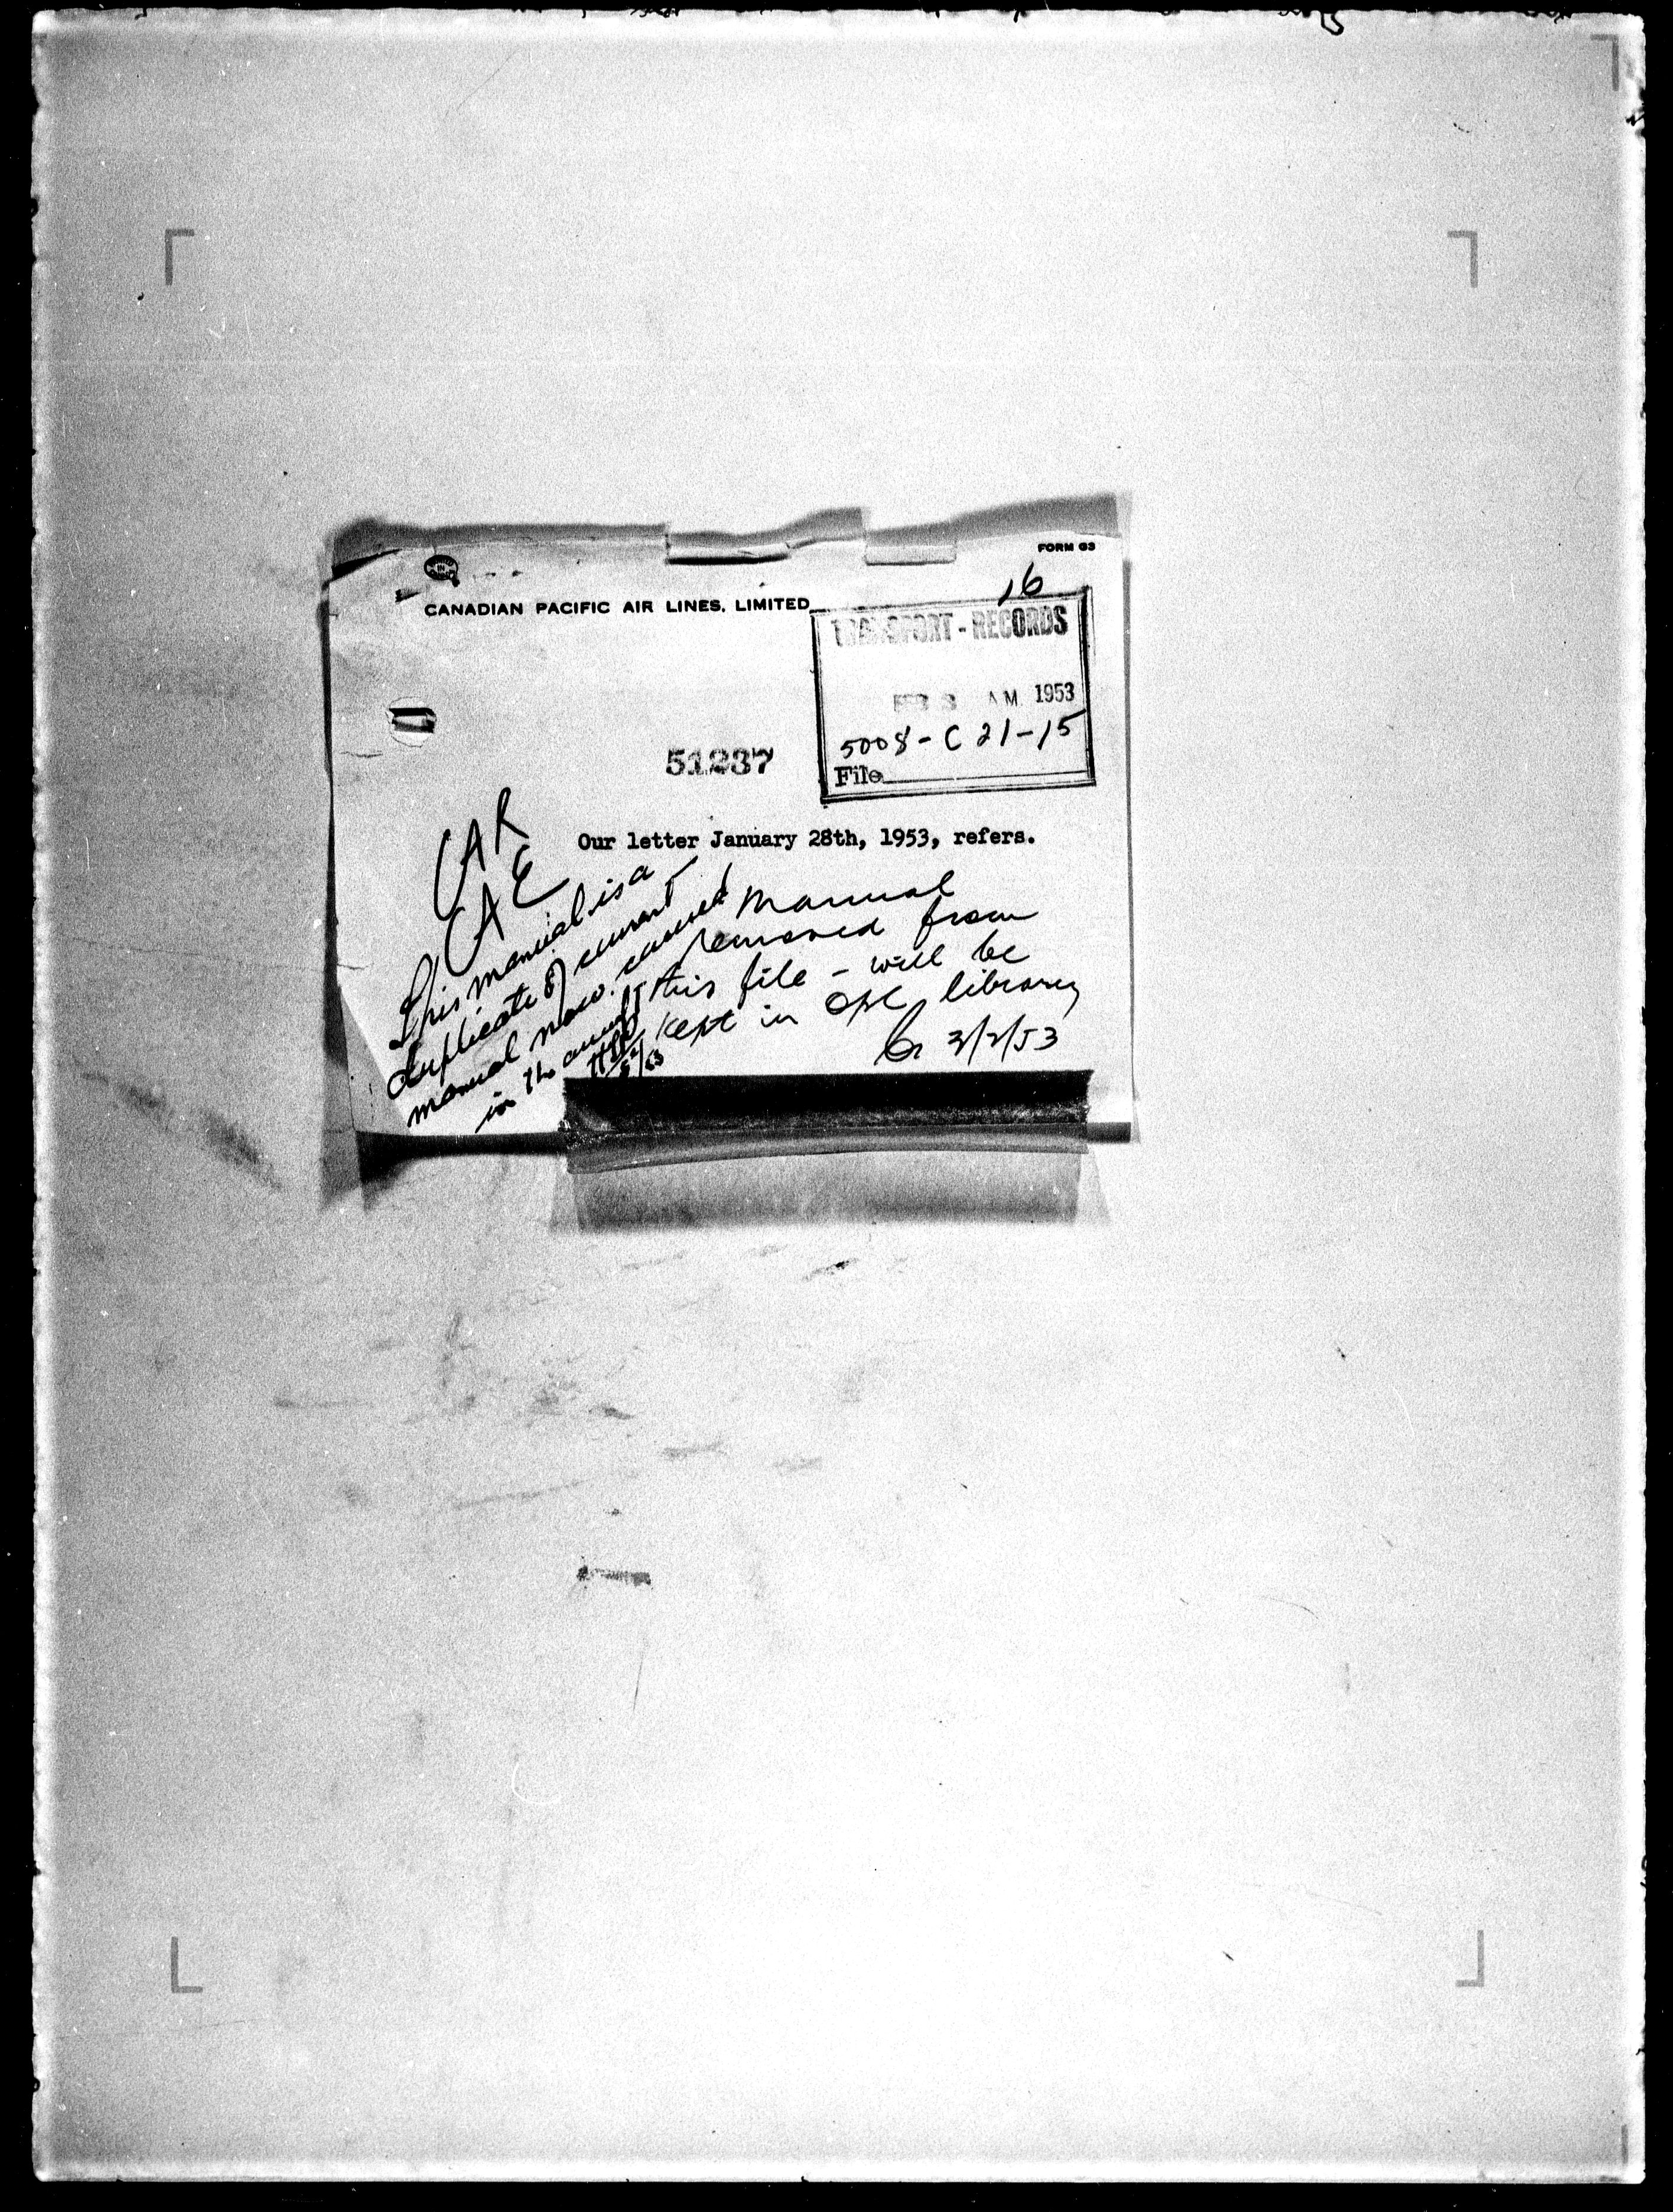 FORM 63
16
CANADIAN PACIFIC AIR LINES, LIMITED
TRANSPORT - RECORDS
FEB 3 AM 1953
5008 - C 21-15
File
51237
Our letter January 28th, 1953, refers.
CAR
CAE
This manual is a
duplicate of current
manual now carried
in the
Manual
removed from
this file - will be
kept in library
3/2/53